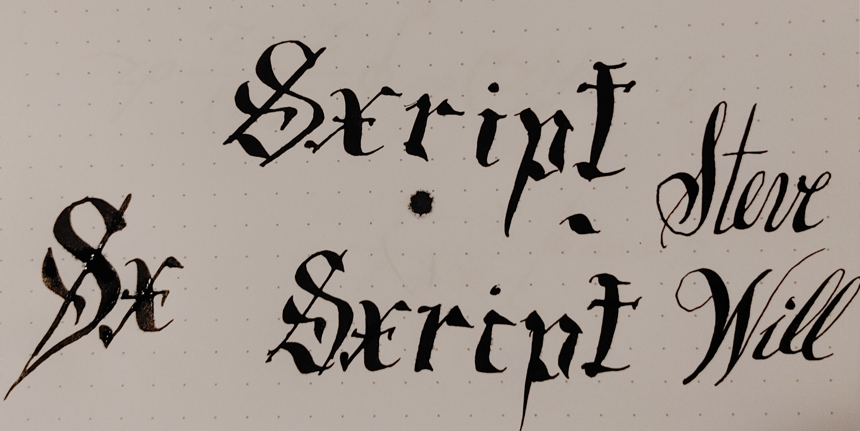 Sxript
Steve
Sx
Sxript
Will